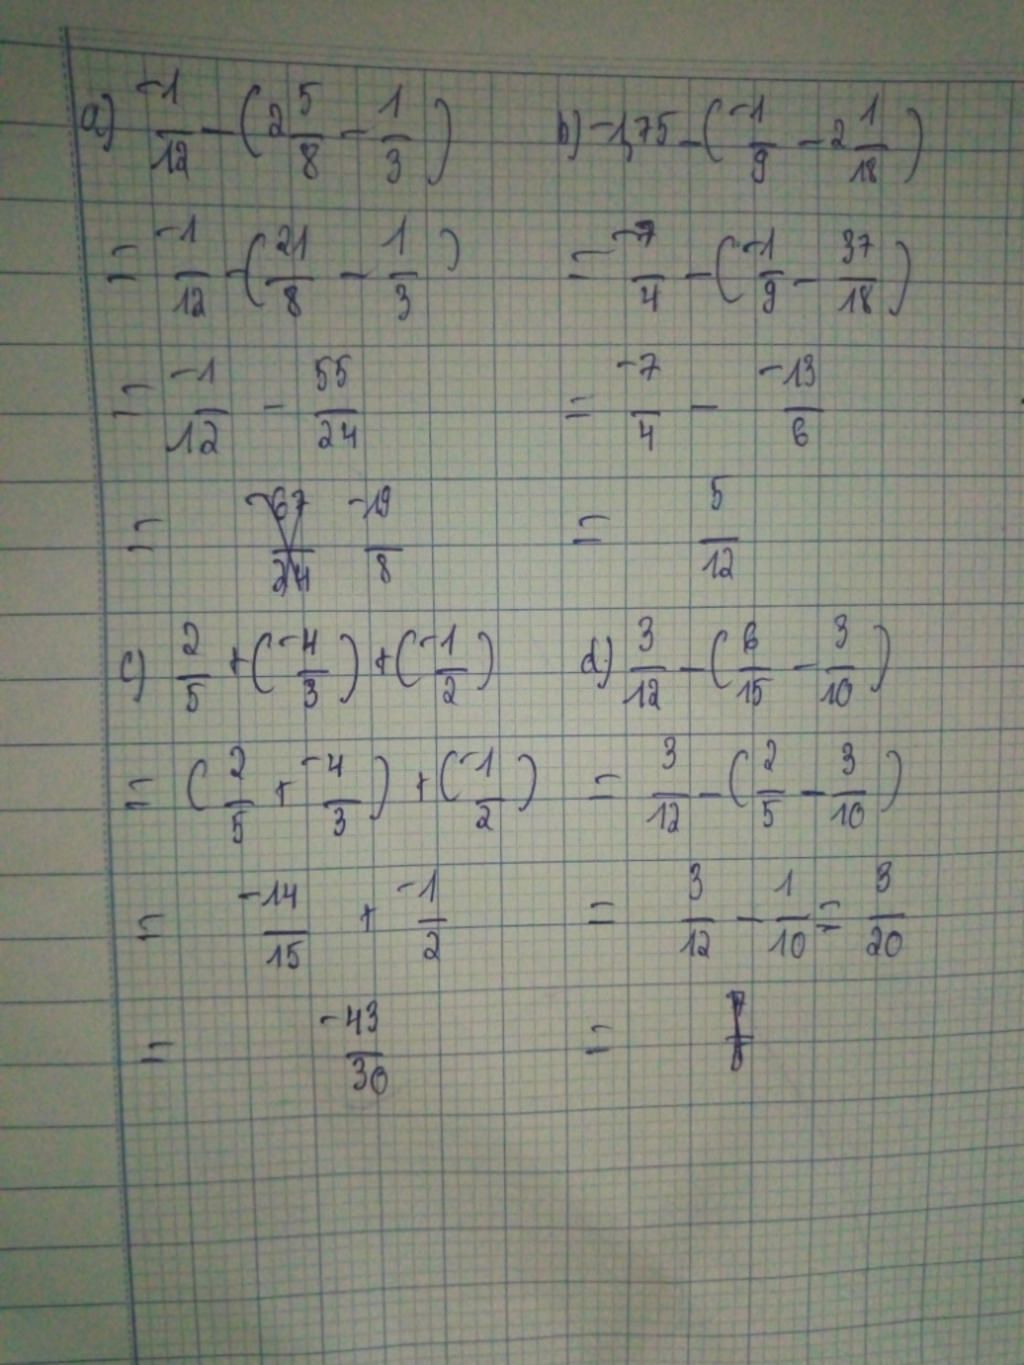 a) -1/12 - (2 5/8 - 1/3)
= -1/12 - (21/8 - 1/3)
= -1/12 - 55/24
= -67/24 -19/8
b) -1,75 - (-1/9 - 2 1/18)
= -7/4 - (-1/9 - 37/18)
= -7/4 - -13/6
= 5/12
c) 2/5 + (-4/3) + (-1/2)
= (2/5 + -4/3) + (-1/2)
= -14/15 + -1/2
= -43/30
d) 3/12 - (6/15 - 3/10)
= 3/12 - (2/5 - 3/10)
= 3/12 - 1/10 = 3/20
=